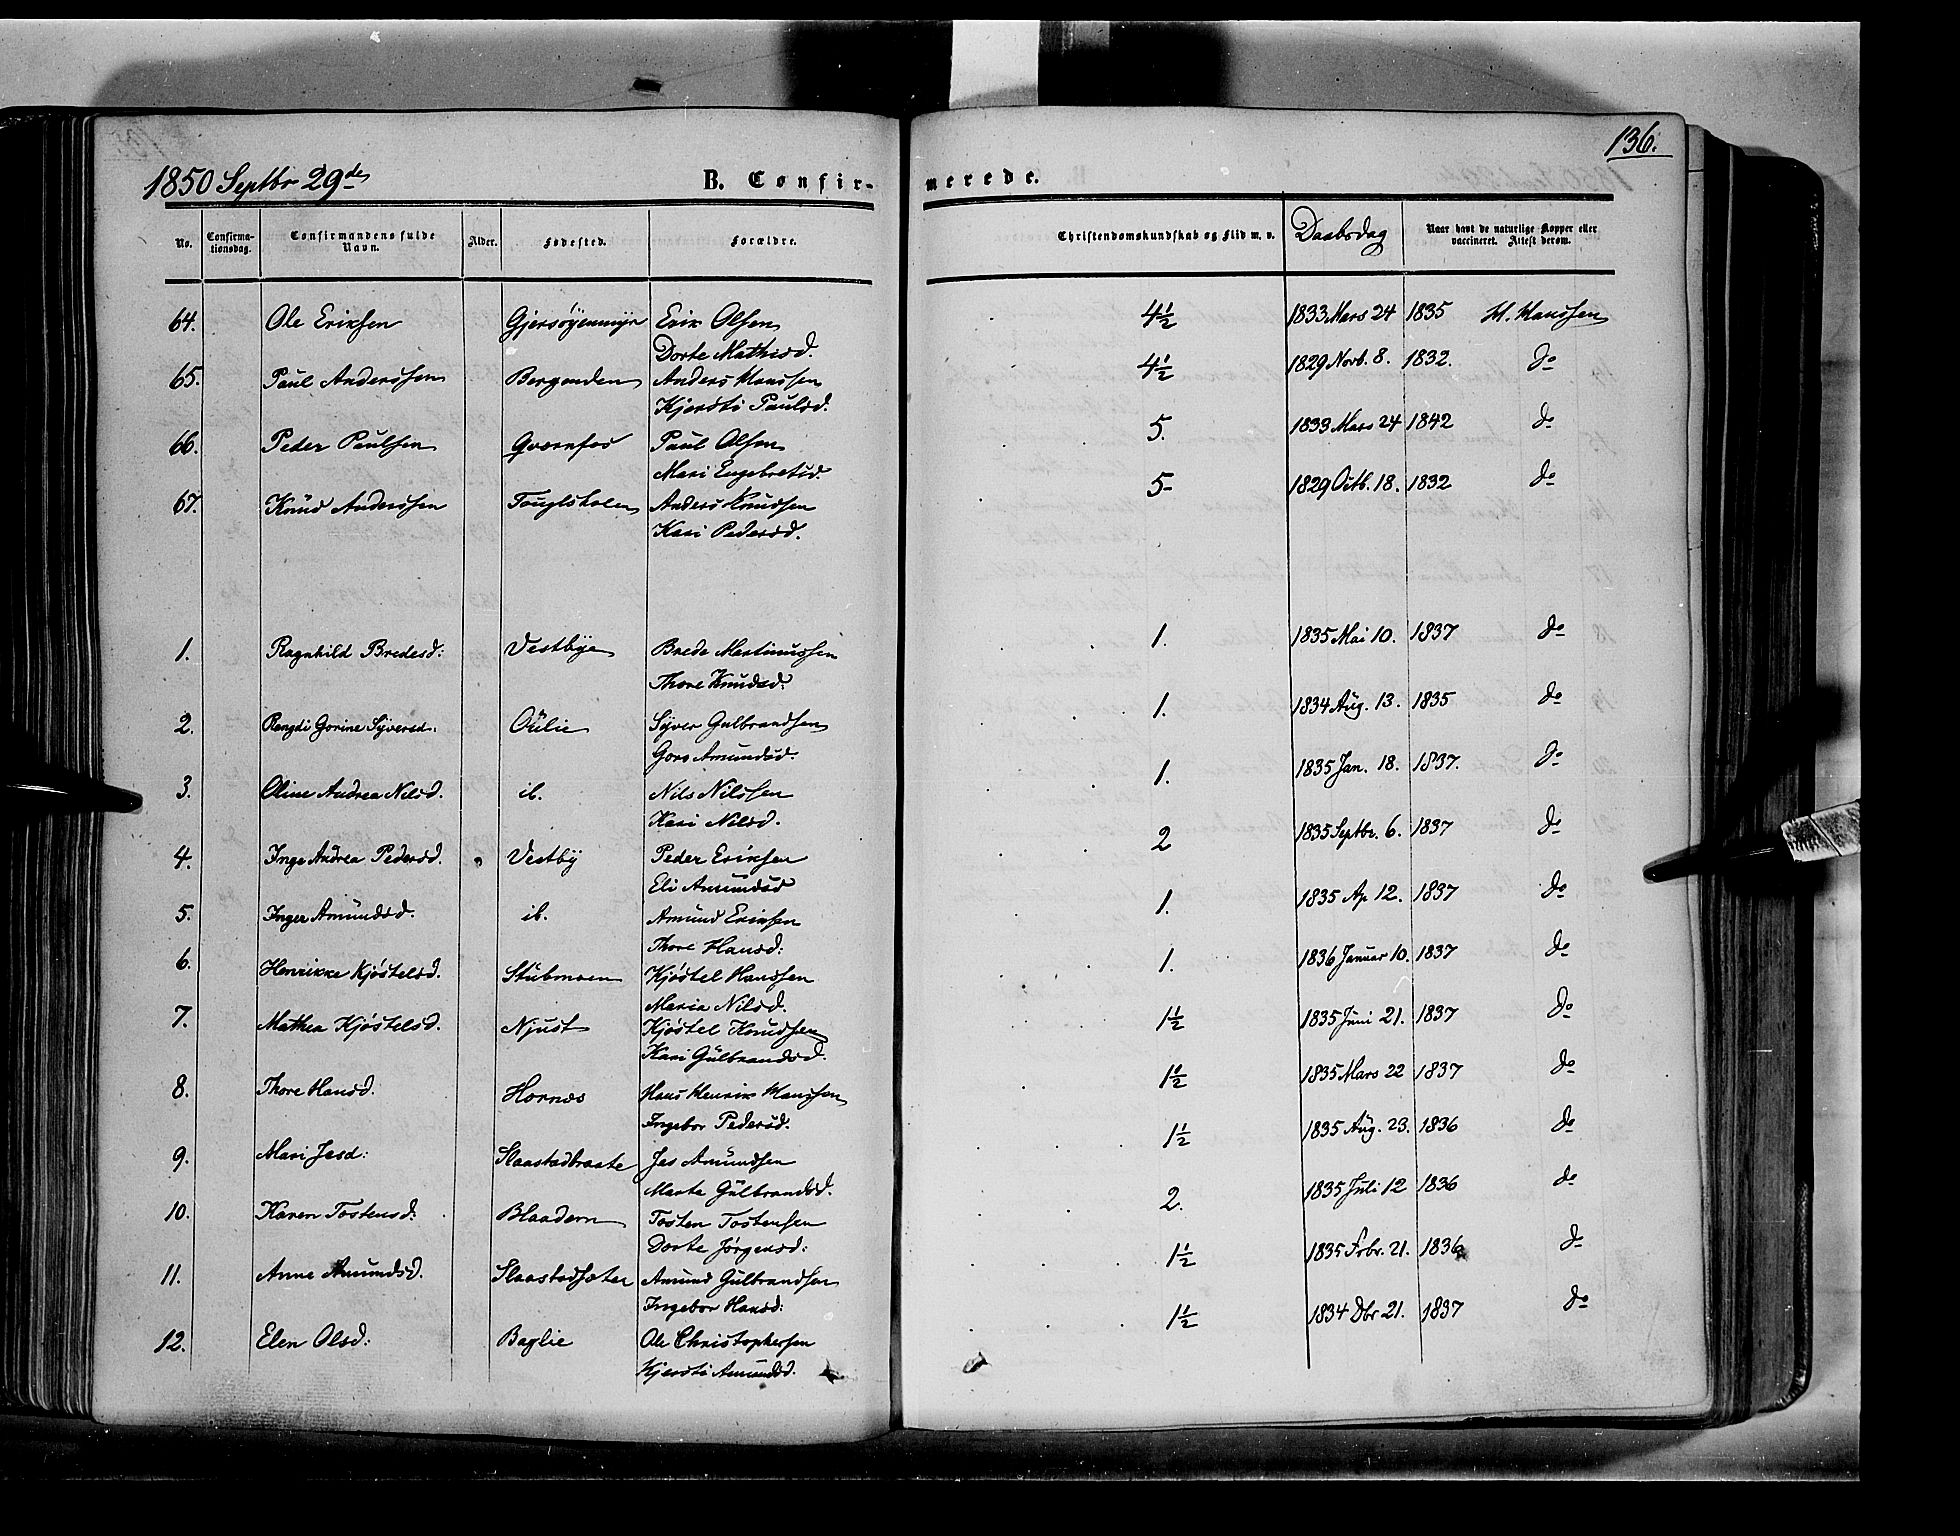 136.
1850 Septbr 29de B. Confirmerede.
No. Confirmationsdag. Confirmandens fulde Navn. Alder. Fødested. Forældre. Christendomskundskab og Flid m. v. Daabsdag Naar havt de naturlige Kopper eller vaccineret. Attest derom.
64. Ole Eriksen Gjersøyenmyr Erik Olsen 4½ 1833 Mars 24 1835 H. Hanssen
Dorte Mathisd.
65. Paul Anderssen Bergenden Anders Hanssen 4½ 1829 Novb. 8. 1832. do
Kjersti Paulsd.
66. Peder Paulsen Qvernfos Paul Olsen 5. 1833 Mars 24 1842 do
Mari Engebretsd.
67. Knud Anderssen Anders Knudsen 5- 1829 Octb. 18. 1832 do
Kari Pedersd.
1. Ragnhild Bredesd: Vestbye Brede Martinussen 1. 1835 Mai 10. 1837 do
Thore Knudsd:
2. Rangdi Gorine Syversd: Oulie Syver Gulbrandsen 1. 1834 Aug. 13. 1835 do
Goro Amundsd.
3. Oline Andrea Nilsd. ib. Nils Nilssen 1. 1835 Jan. 18. 1837. do
Kari Nilsd.
4. Inge Andrea Pedersd. Vestby Peder Eriksen 2 1835 Septbr. 6. 1837 do
Eli Amundsd
5. Inger Amundsd. ib. Amund Eriksen 1. 1835 Ap 12. 1837 do
Thore Hansd:
6. Henrikke Kjøstelsd. Stubmoen Kjøstel Hanssen 1. 1836 Januar 10. 1837 do
Maria Nilsd.
7. Mathea Kjøstelsd. Njust Kjøstel Knudsen 1½ 1835 Juni 21. 1837 do
Kari Gulbrandsd.
8. Thore Hansd. Hornes Hans Henrik Hanssen 1½ 1835 Mars 22 1837 do
Ingebor Pedersd.
9. Mari Jasd: Slaastadbraate Jas Amundsen 1½ 1835 Aug. 23. 1836 do
Marte Gulbrandsd.
10. Karen Tostensd: Blaadern Tosten Tostensen 2. 1835 Juli 12 1836 do
Dorte Jørgensd:
11. Anne Amundsd. Slaastadsæter Amund Gulbrandsen 1½ 1835 Febr. 21. 1836 do
Ingebor Hansd:
12. Elen Olsd: Baglie Ole Christophersen 1½ 1834 Dbr 21. 1837 do
Kjersti Amundsd.